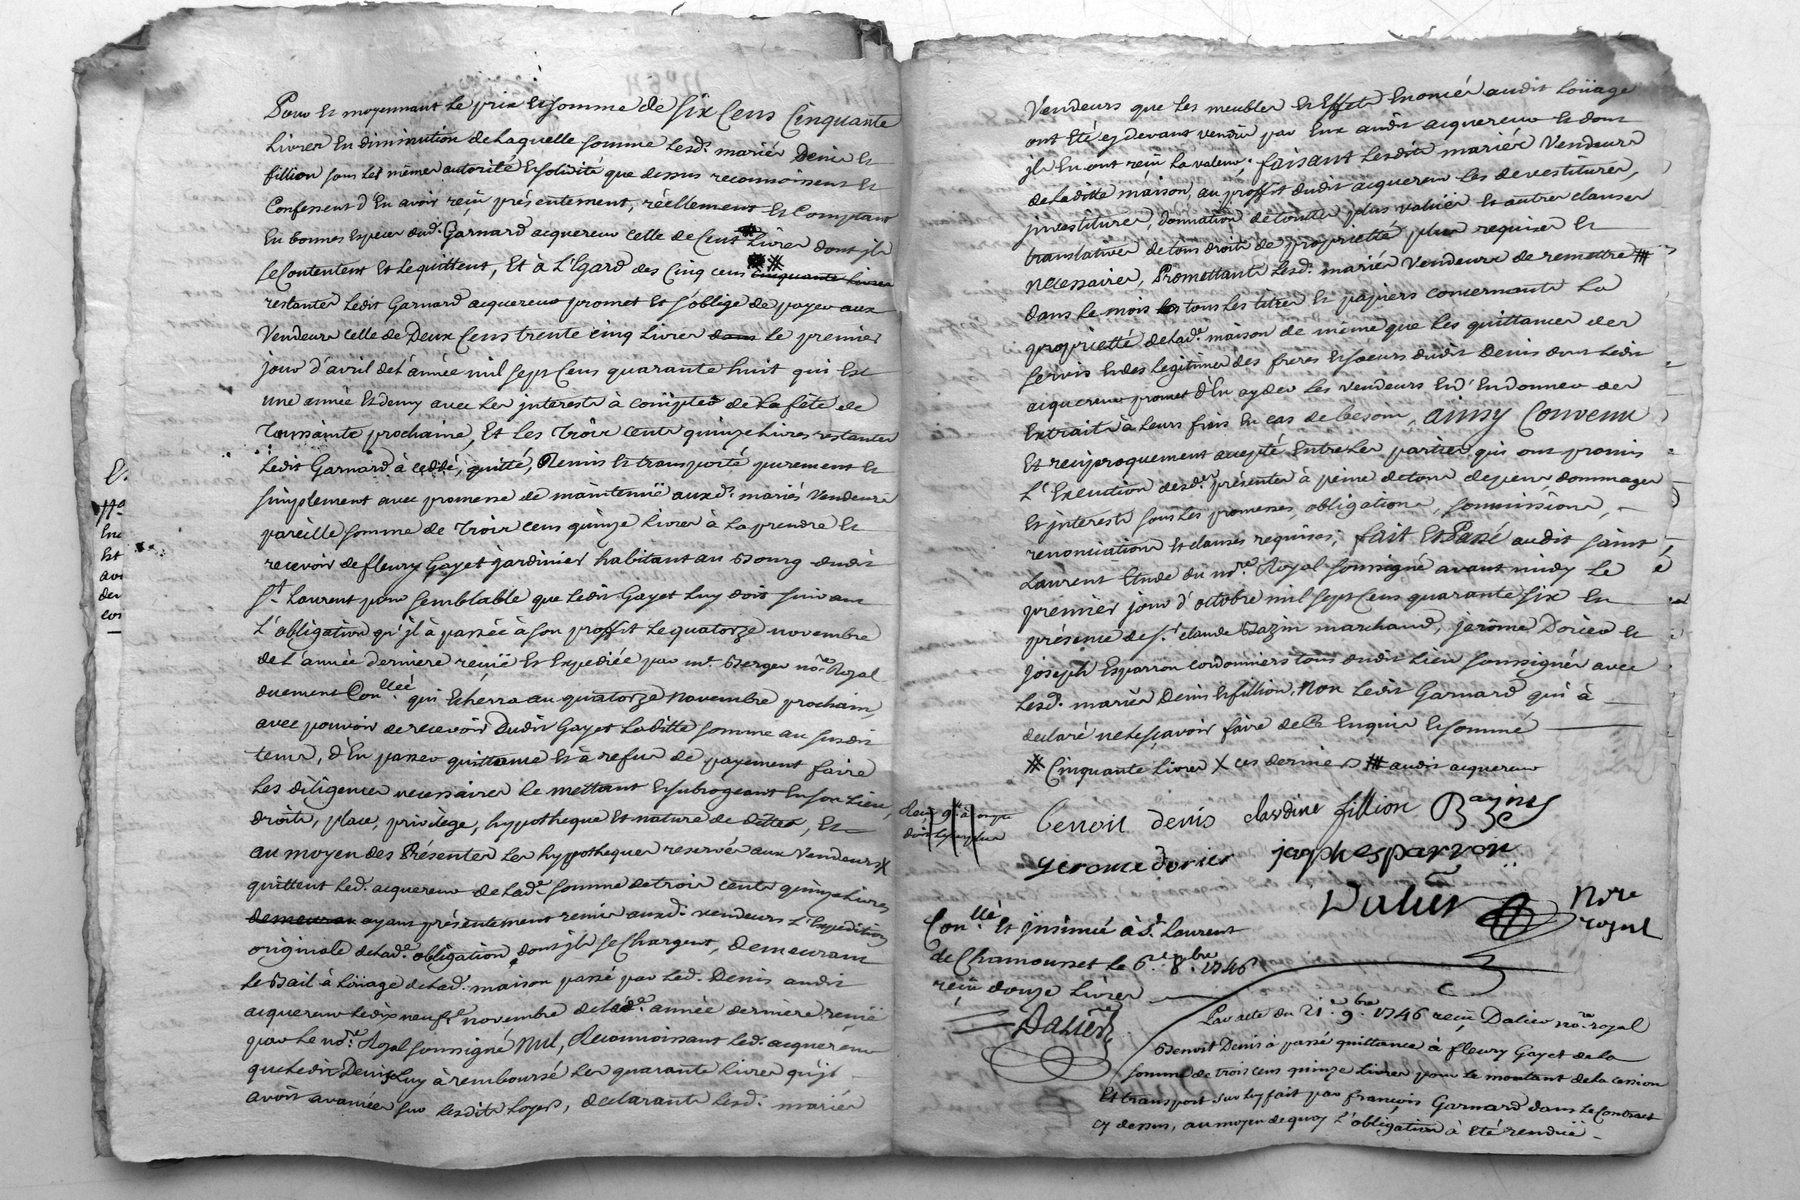 Pour et moyennant le prix et somme de six cens cinquante
livres en diminution de laquelle somme lesd. mariés Denis et
fillion sous les mêmes autorité et solidité que dessus reconnoissent et
confessent d'en avoir reçû présentement, réellement et comptant
en bonnes especes dud. Garnard acquereur celle de cent # livres dont jls
se contentent et le quittent, et à l'égard des cinq cens # cinquante livres
restantes ledit Garnard acquereur promet et s'oblige de payer aux
vendeurs celle de Deux cens trente cinq livres dans le premier
jour d'avril de l'année mil sept cens quarante huit qui est
une année et demy avec les jnterests à compter de la fête de
Toussaints prochaine, et les trois cents quinze livres restantes
ledit Garnard à ceddé, quitté, Remis et transporté purement et
simplement avec promesse de maintenüe auxd. mariés vendeurs
pareille somme de trois cens quinze livres à la prendre et
recevoir de fleury Gayet jardinier habitant au Bourg dudit
St. Laurent pour semblable que ledit Gayet luy doit suivant
l'obligation qu'jl à passée à son proffit le quatorze novembre
de l'année derniere reçüe et expediée par me. Berger nore. Royal
duement Conllée qui echerra au quatorze novembre prochain,
avec pouvoir de recevoir dudit Gayet laditte somme au susdit
terme, d'en passer quittance et à refus de payement faire
les diligences necessaires le mettant et subrogeant en son lieu,
droits, place, privilège, hypotheque et nature de dettes, et
au moyen des Présentes les hypotheques reservés aux vendeurs X
quittent led. acquereur de lade. somme de trois cents quinze livres
demeuran ayant présentement remis auxd. vendeurs l'expedition
originale de lade. obligation dont jls se chargent, demeurant
le Bail à loüage de lad. maison passé par led. Denis audit
acquereur le dix neufe. novembre de lade. année derniere reçüe
par le nore. Royal soussigné nul, Reconnoissant led. acquereur
que ledit Denis luy à remboursé les quarante livres qu'jl
avoit avancées sur lesdits loyers, declarants lesd. mariés
Vendeurs que les meubles et effets enoncés audit loüage
ont eté cy devant vendus par eux audit acquereur et dont
jls en ont reçû la valeur. faisant lesdits mariés Vendeurs
de laditte maison, au proffit dudit acquereur les devestitures,
jnvestitures, donnation de toutes plus valües et autres clauses
translatives de tous droits de proprietté plus requises et
necessaires, Promettants lesd. mariés Vendeurs de remettre #
dans le mois tous les titres et papiers concernants la
proprietté de lade. maison de même que les quittances des
servis et des legitimes des freres et soeurs dudit Denis dont ledit
acquereur promet d'en ayder les vendeurs et d'en donner des
extraits à leurs frais en cas de besoin, ainsy convenu
et reciproquement accepté entre les parties qui ont promis
l'execution desdes. présentes à peine de tous depens dommages
et jnterests sous les promesses, obligations, soumissions,
renonciations et clauses requises, fait et Passé audit saint
Laurent etude du nore. Royal soussigné avant midy le
premier jour d'octobre mil sept cens quarante six en
présence de sr. claude Bazin marchand, jerôme Dorier et
Joseph Esparron cordonniers tous dudit lieu soussignés avec
lesd. mariés Denis et fillion, Non ledit Garnard qui à
declaré ne le sçavoir faire de ce enquis et sommé
# Cinquante livres X ces derniers # audit acquereur
benoit denis clardine fillion Bazin
gerome dorier joseph esparron
Dalier Nore
royal
Conllé et jnsinué à St. Laurent
de Chamousset le 6e. 8bre. 1746
reçû douze livres
Dalier
Par acte du 21e. 9bre. 1746 reçu Dalier nore. royal
Benoit Denis a passé quittance à fleury Gayet de la
somme de trois cens quinze livres pour le montant de la cession
et transport sur luy fait par françois Garnard dans le Contract
cy dessus, au moyen de quoy l'obligation à eté rendüe